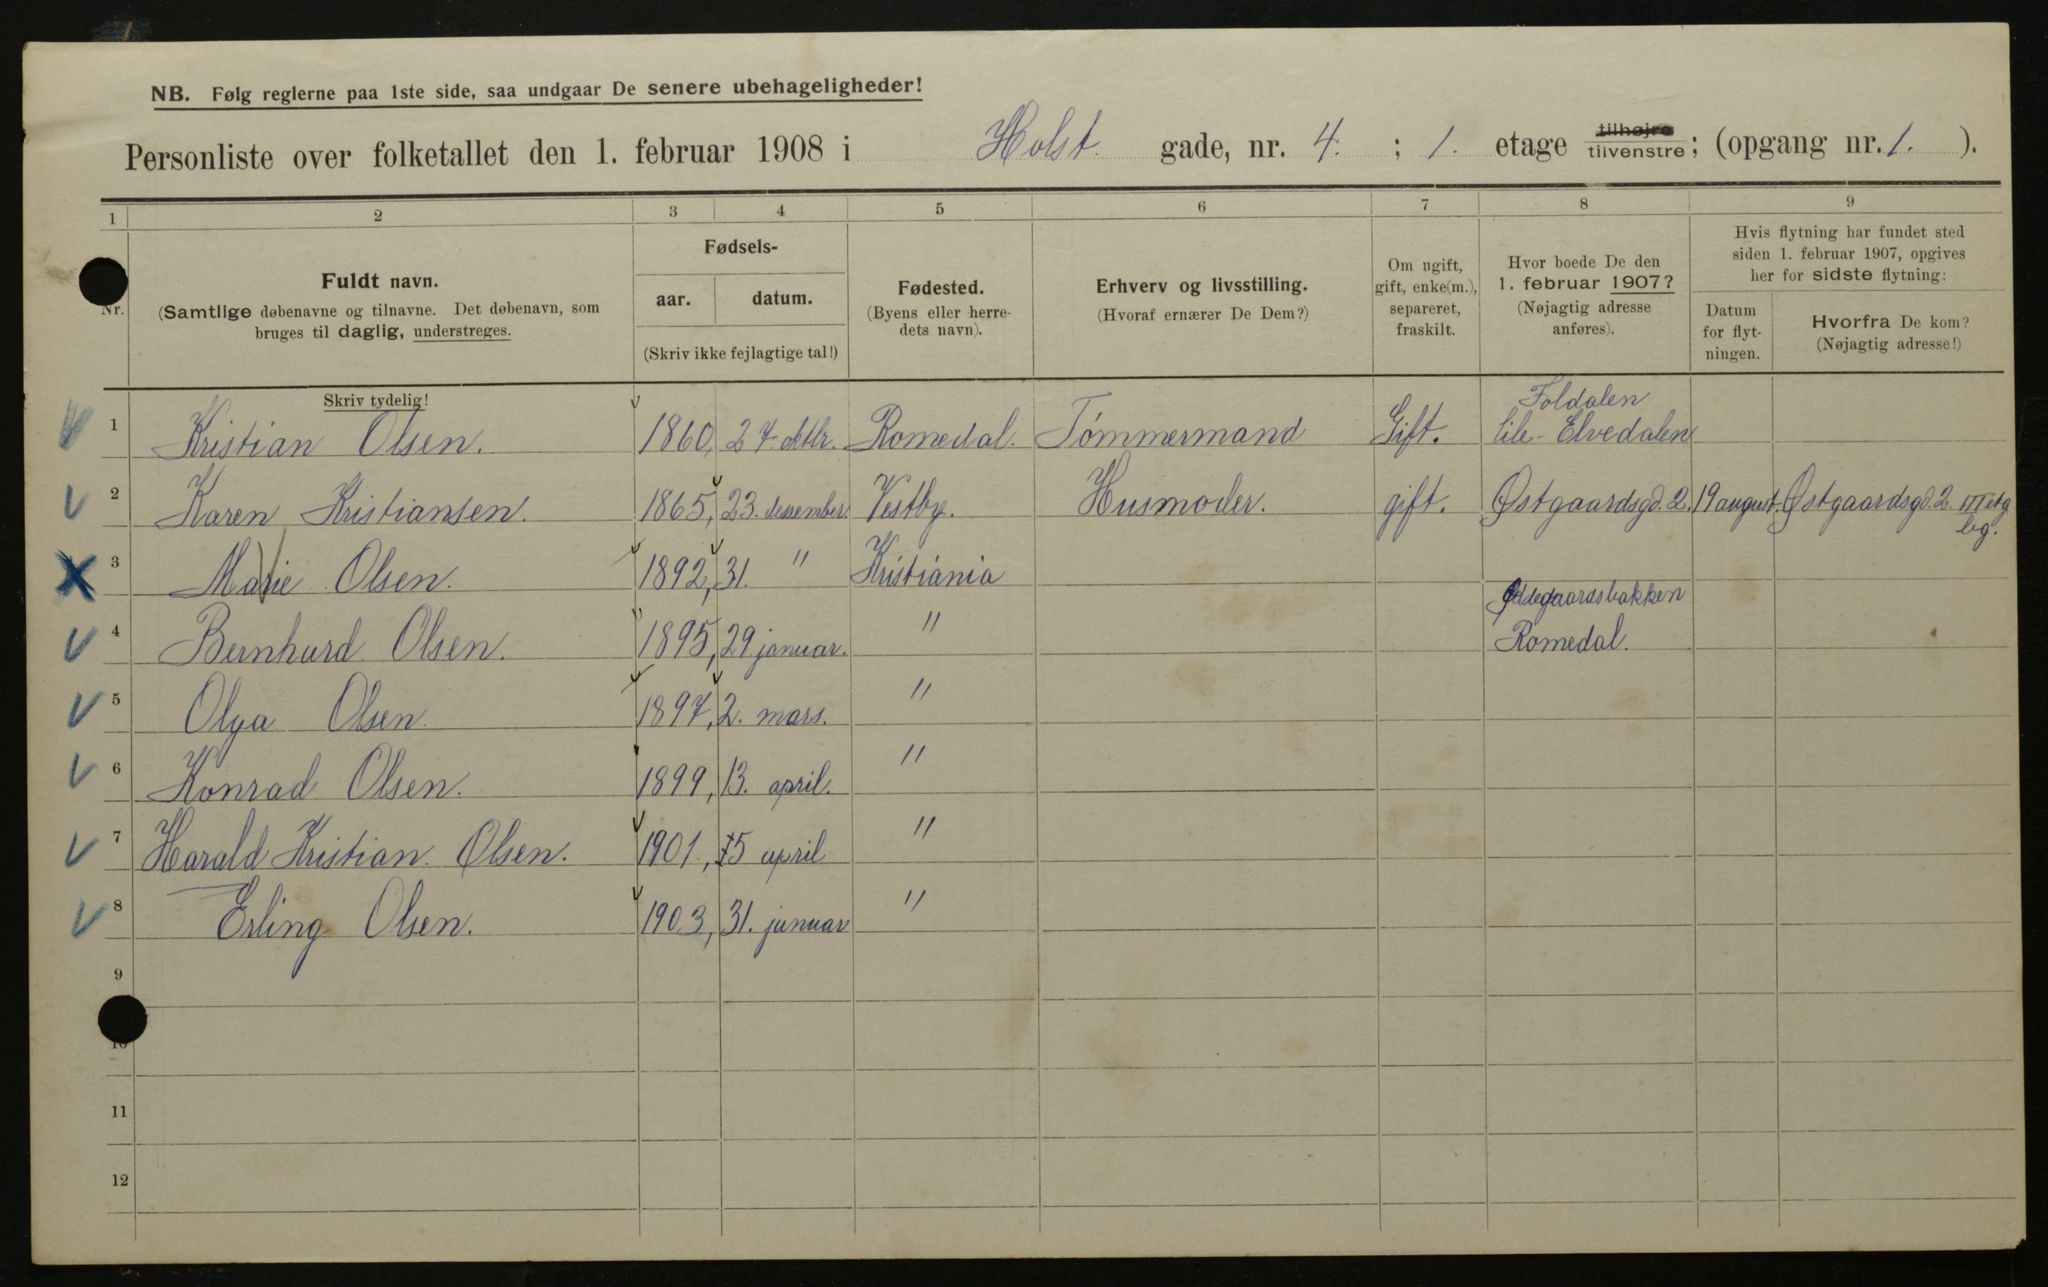 NB. Følg reglerne paa 1ste side, saa undgaar De senere ubehageligheder!
Personliste over folketallet den 1. februar 1908 i Holst. gade, nr. 4. ; 1. etage tilhøjre tilvenstre; (opgang nr. 1. ).
1 2 3 4 5 6 7 8 9
Nr.
Fuldt navn.
(Samtlige døbenavne og tilnavne. Det døbenavn, som
bruges til daglig, understreges.
Fødsels-
aar. datum.
(Skriv ikke fejlagtige tal!)
Fødested.
(Byens eller herre-
dets navn).
Erhverv og livsstilling.
(Hvoraf ernærer De Dem?)
Om ugift,
gift, enke(m.),
separeret,
fraskilt.
Hvor boede De den
1. februar 1907?
(Nøjagtig adresse
anføres).
Hvis flytning har fundet sted
siden 1. februar 1907, opgives
her for sidste flytning:
Datum
for flyt-
ningen.
Hvorfra De kom?
(Nøjagtig adresse!)
Skriv tydelig!
Foldalen
1 Kristian Olsen. 1860, 27 Romedal. Tømmermand Gift. lile-Elvedalen
2 Karen Kristiansen. 1865, 23. desember Vestby. Husmoder. gift. Østgaardsgd. 2. 19 august. Østgaardsgd. 2. III etg
bg.
3 Marie Olsen. 1892, 31. " Kristiania
Ødegaardsbakken
4 Bernhard Olsen. 1895, 29 januar. " Romedal.
5 Olga Olsen. 1897, 2. mars. "
6 Konrad Olsen. 1899, 13. april. "
7 Harald Kristian Olsen. 1901., 15 april "
8 Erling Olsen. 1903, 31. januar "
9
10
11
12